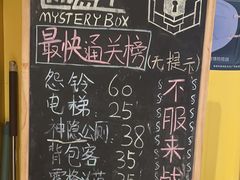 MYSTERY BOX
最快通关榜
(无提示)
怨铃 60
电梯 25'
神隐公厕 38'
背包客 35'
不服来战